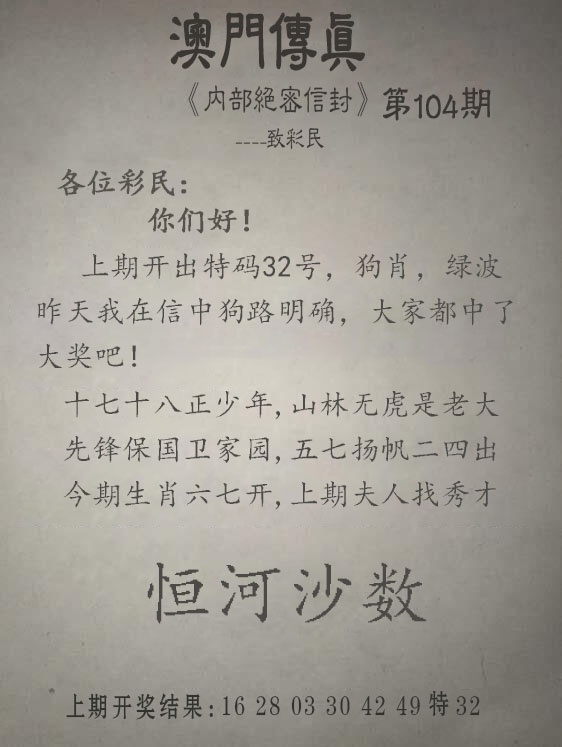 澳門傳眞
《内部絕密信封》第104期
----致彩民
各位彩民：
你们好！
上期开出特码32号，狗肖，绿波
昨天我在信中狗路明确，大家都中了
大奖吧！
十七十八正少年,山林无虎是老大
先锋保国卫家园,五七扬帆二四出
今期生肖六七开,上期夫人找秀才
恒河沙数
上期开奖结果:16 28 03 30 42 49 特 32